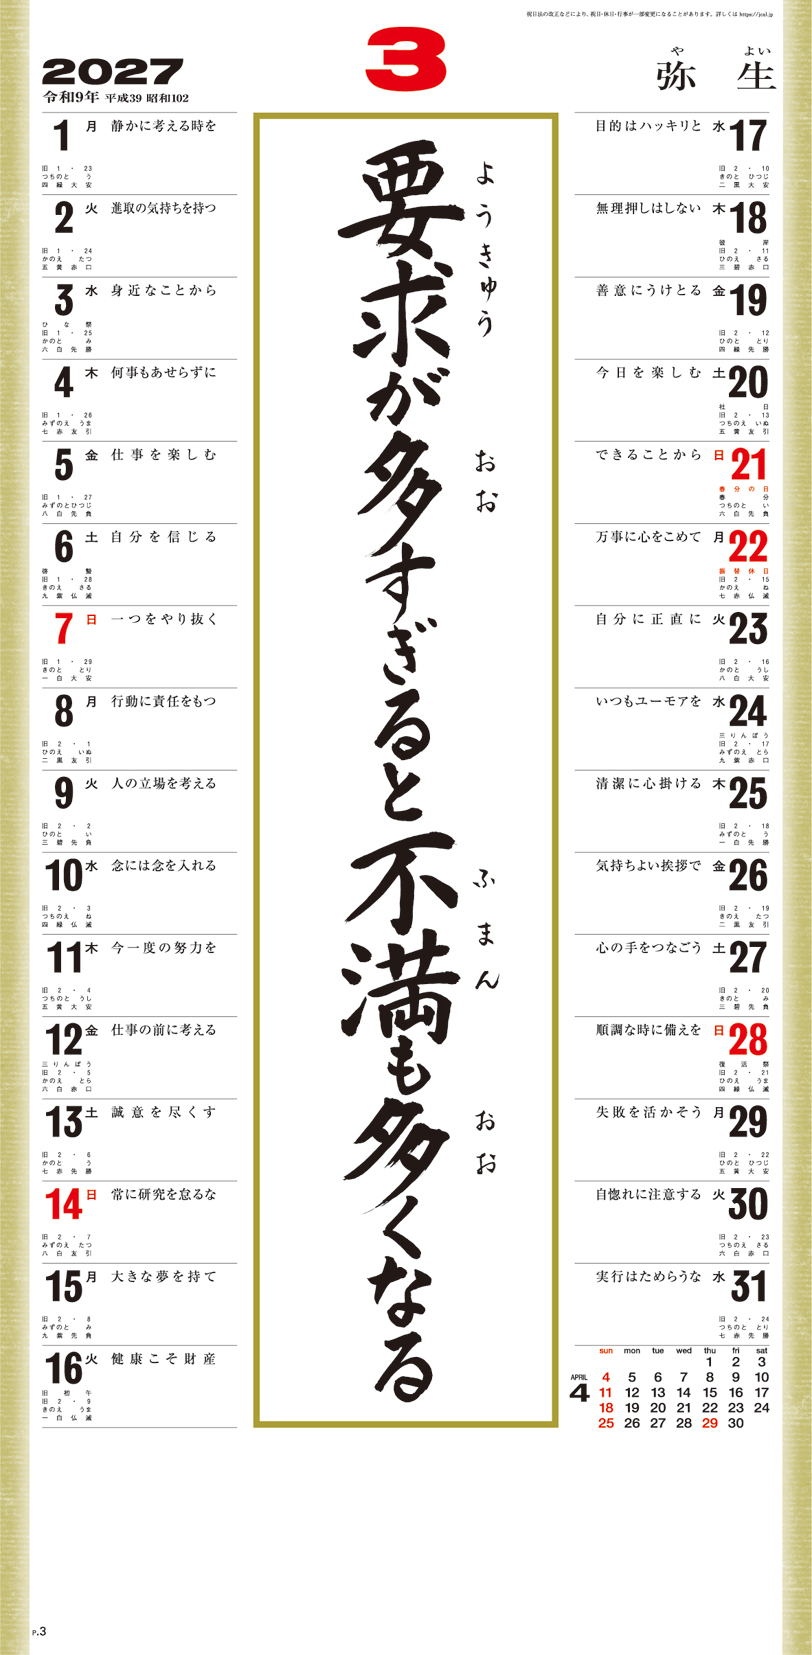 祝日法の改正などにより、祝日・休日・行事が一部変更になることがあります。詳しくは https://jcal.jp
2027
令和9年 平成39 昭和102
3
や よい
弥生
要求が多すぎると不満も多くなる
ようきゅう
おお
ふまん
おお
1 月 静かに考える時を
旧1・23
つちのと う
四緑大安
2 火 進取の気持ちを持つ
旧1・24
かのえ たつ
五黄赤口
3 水 身近なことから
ひな祭
旧1・25
かのと み
六白先勝
4 木 何事もあせらずに
旧1・26
みずのえ うま
七赤友引
5 金 仕事を楽しむ
旧1・27
みずのとひつじ
八白先負
6 土 自分を信じる
啓蟄
旧1・28
きのえ さる
九紫仏滅
7 日 一つをやり抜く
旧1・29
きのと とり
一白大安
8 月 行動に責任をもつ
旧2・1
ひのえ いぬ
二黒友引
9 火 人の立場を考える
旧2・2
ひのと い
三碧先負
10 水 念には念を入れる
旧2・3
つちのえ ね
四緑仏滅
11 木 今一度の努力を
旧2・4
つちのと うし
五黄大安
12 金 仕事の前に考える
三りんぼう
旧2・5
かのえ とら
六白赤口
13 土 誠意を尽くす
旧2・6
かのと う
七赤先勝
14 日 常に研究を怠るな
旧2・7
みずのえ たつ
八白友引
15 月 大きな夢を持て
旧2・8
みずのと み
九紫先負
16 火 健康こそ財産
旧初午
旧2・9
きのえ うま
一白仏滅
目的はハッキリと 水 17
旧2・10
きのと ひつじ
二黒大安
無理押しはしない 木 18
彼岸
旧2・11
ひのえ さる
三碧赤口
善意にうけとる 金 19
旧2・12
ひのと とり
四緑先勝
今日を楽しむ 土 20
社日
旧2・13
つちのえ いぬ
五黄友引
できることから 日 21
春分の日
春分
つちのと い
六白先負
万事に心をこめて 月 22
振替休日
旧2・15
かのえ ね
七赤仏滅
自分に正直に 火 23
旧2・16
かのと うし
八白大安
いつもユーモアを 水 24
三りんぼう
旧2・17
みずのえ とら
九紫赤口
清潔に心掛ける 木 25
旧2・18
みずのと う
一白先勝
気持ちよい挨拶で 金 26
旧2・19
きのえ たつ
二黒友引
心の手をつなごう 土 27
旧2・20
きのと み
三碧先負
順調な時に備えを 日 28
復活祭
旧2・21
ひのえ うま
四緑仏滅
失敗を活かそう 月 29
旧2・22
ひのと ひつじ
五黄大安
自惚れに注意する 火 30
旧2・23
つちのえ さる
六白赤口
実行はためらうな 水 31
旧2・24
つちのと とり
七赤先勝
APRIL
4
sun mon tue wed thu fri sat
1 2 3
4 5 6 7 8 9 10
11 12 13 14 15 16 17
18 19 20 21 22 23 24
25 26 27 28 29 30
P.3